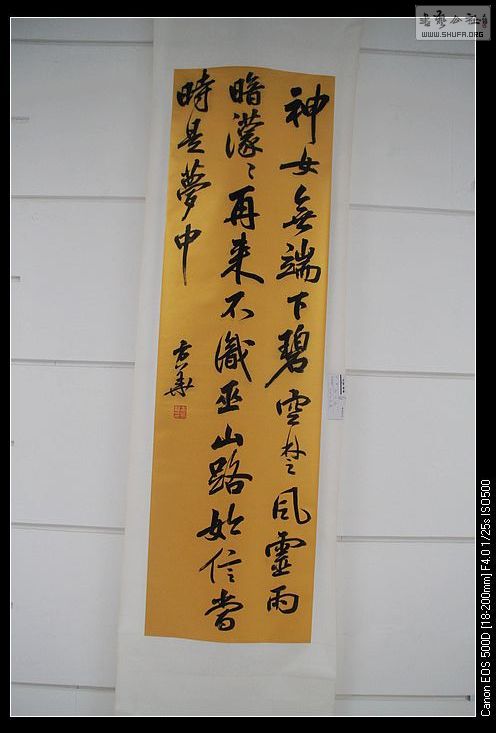 神女無端下碧空楚風靈雨
暗濛〻再来不識巫山路始信當
時是夢中
書藝公社
WWW.SHUFA.ORG
Canon EOS 500D [18-200mm] F4.0 1/25s ISO500